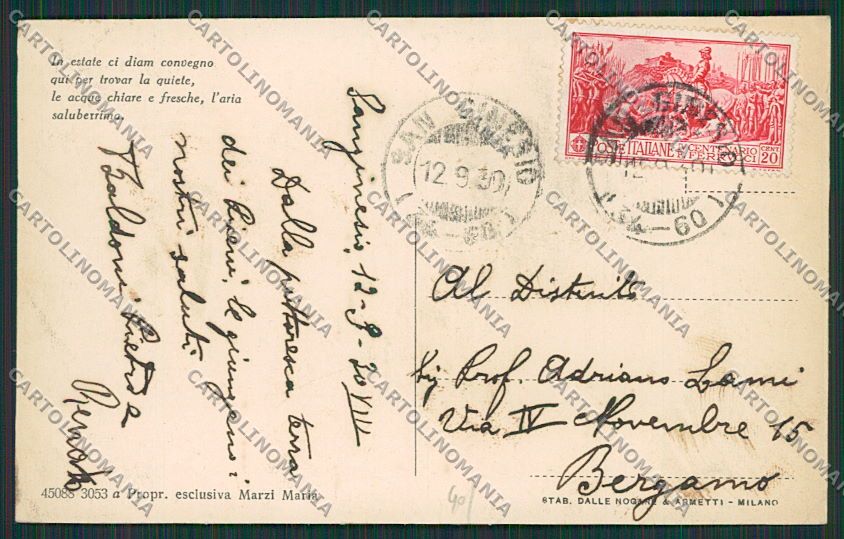 In estate ci diam convegno
qui per trovar la quiete,
le acque chiare e fresche, l'aria
saluberrima.
Sanginesio, 12-9-30 VIII
Dalla pittoresca terra
dei Pieni, le giungano i
nostri saluti
Baldoni Pietro e
Renato
SAN GINESIO
12.9.30
POSTE ITALIANE
CENTENARIO
FERRUCCI
CENT 20
SAN GINESIO
Al Distinto
Sig Prof. Adriano Lami
Via IV Novembre 15
Bergamo
45088 3053 a Propr. esclusiva Marzi Maria
STAB. DALLE NOGARE & ARMETTI - MILANO
40
CARTOLINOMANIA